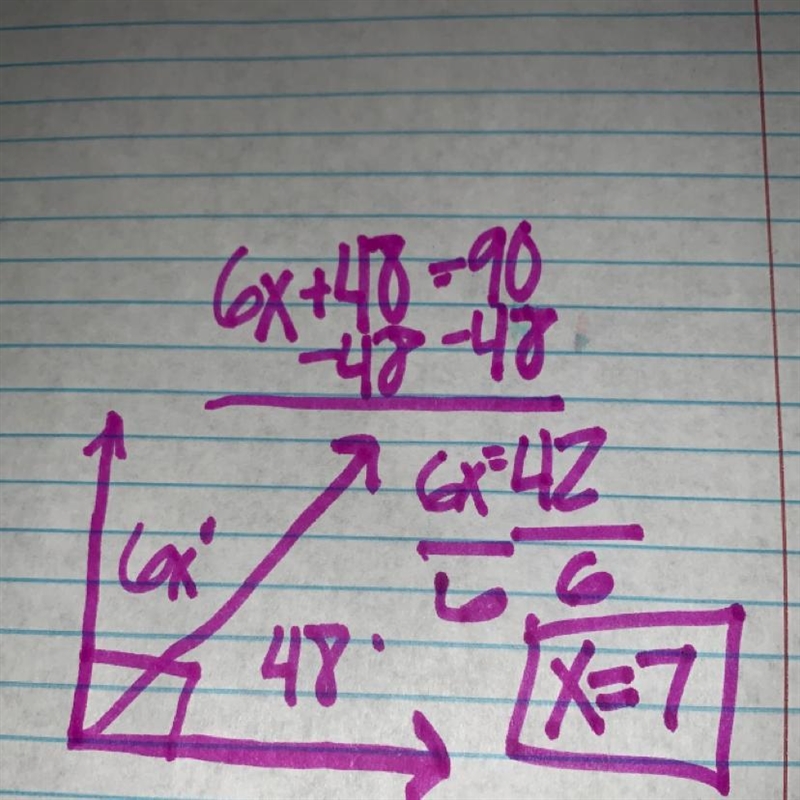 6x+48=90
-48 -48
6x=42
6 6
6x°
48°
x=7